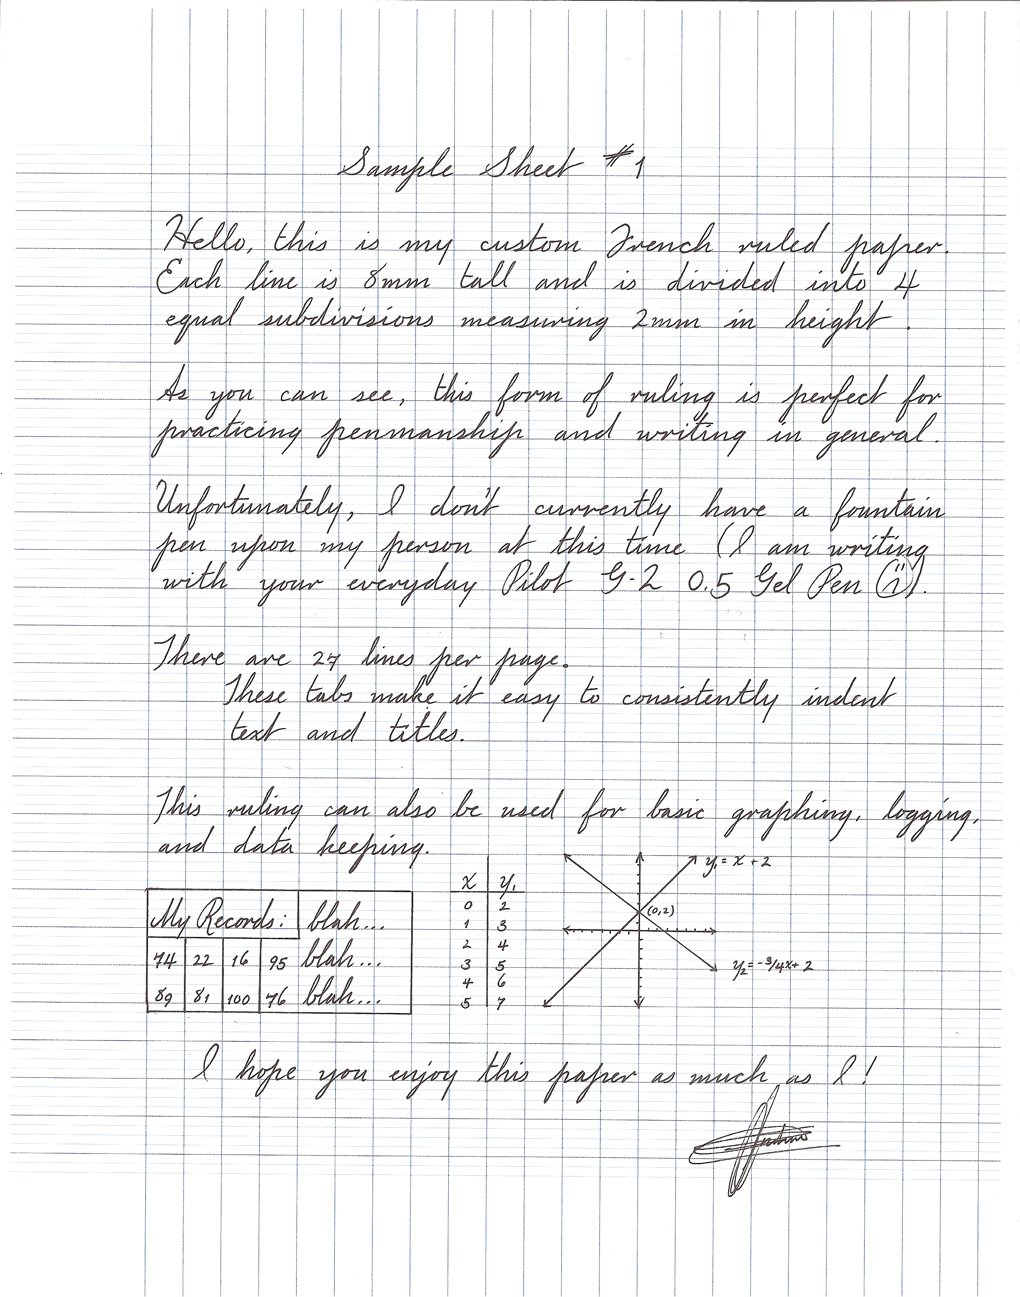 Sample Sheet #1
Hello, this is my custom French ruled paper.
Each line is 8mm tall and is divided into 4
equal subdivisions measuring 2mm in height.
As you can see, this form of ruling is perfect for
practicing penmanship and writing in general.
Unfortunately, I don't currently have a fountain
pen upon my person at this time (I am writing
with your everyday Pilot G-2 0.5 Gel Pen ).
There are 27 lines per page.
These tabs make it easy to consistently indent
text and titles.
This ruling can also be used for basic graphing, logging,
and data keeping.
My Records: blah...
74 22 16 95 blah...
89 81 100 76 blah...
x y₁
0 2
1 3
2 4
3 5
4 6
5 7
y₁ = x + 2
(0,2)
y₂ = -3/4x + 2
I hope you enjoy this paper as much as I!